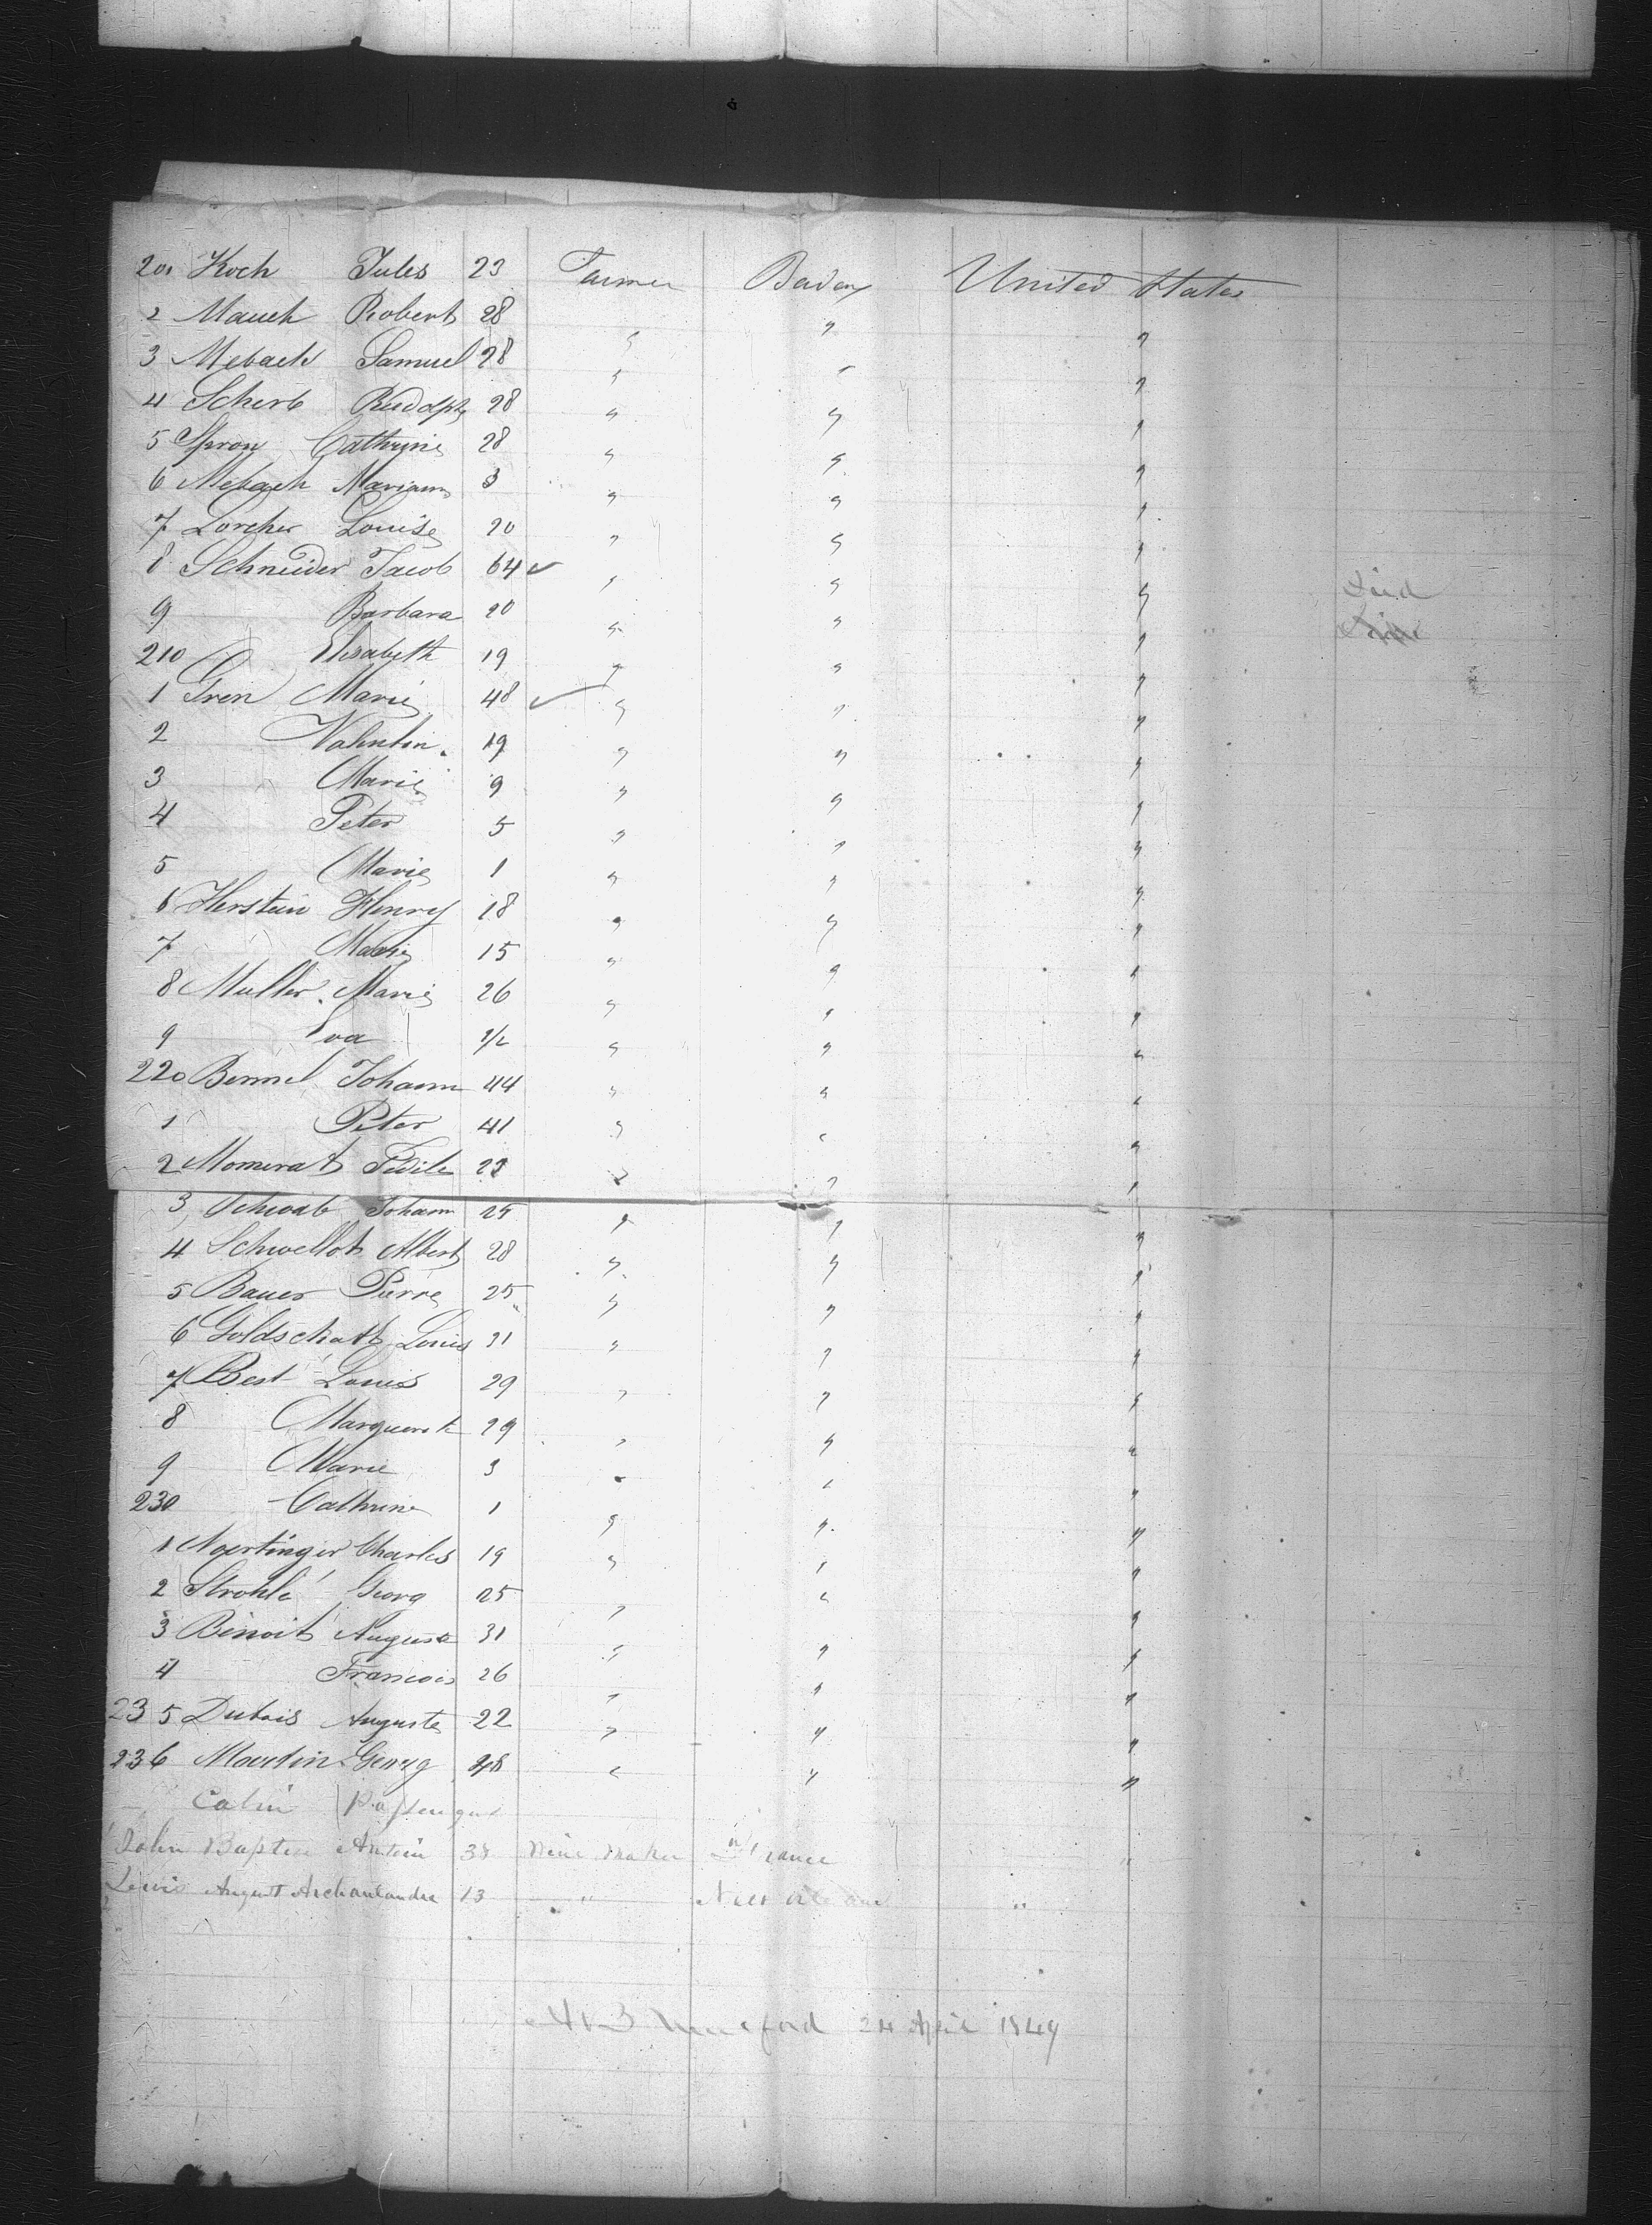 201 Koch Jules 23 Farmer Baden United States
2 Mauch Robert 28 " " "
3 Mebach Samuel 28 " " "
4 Scherb Rudolph 28 " " "
5 Spron Cathrine 28 " " "
6 Mebach Mariann 3 " " "
7 Lorcher Louise 20 " " "
8 Schneider Jacob 64 ✓ " " " Died
9 Barbara 20 " " "
210 Elisabeth 19 " " "
1 Gren Marie 48 ✓ " " "
2 Valentin 19 " " "
3 Marie 9 " " "
4 Peter 5 " " "
5 Marie 1 " " "
6 Herstein Henry 18 " " "
7 Marie 15 " " "
8 Muller Marie 26 " " "
9 Eva 1/2 " " "
220 Bermel Johann 44 " " "
1 Peter 41 " " "
2 Momerat " " "
3 Schwab Johann 25 " " "
4 Schwellot Albert 28 " " "
5 Bauer Pierre 25 " " "
6 Goldschatt Louis 31 " " "
7 Best Louis 29 " " "
8 Marguerit 29 " " "
9 Marie 3 " " "
230 Cathrine 1 " " "
1 Noertinger Charles 19 " " "
2 Strohlé Georg 25 " " "
3 Benoit Auguste 31 " " "
4 Francois 26 " " "
235 Dubois Auguste 22 " " "
236 Martin Georg 48 " " "
Cabin Passengers
John Baptist 38 Maker France "
Lewis August 13 " New Orleans "
24 April 1849